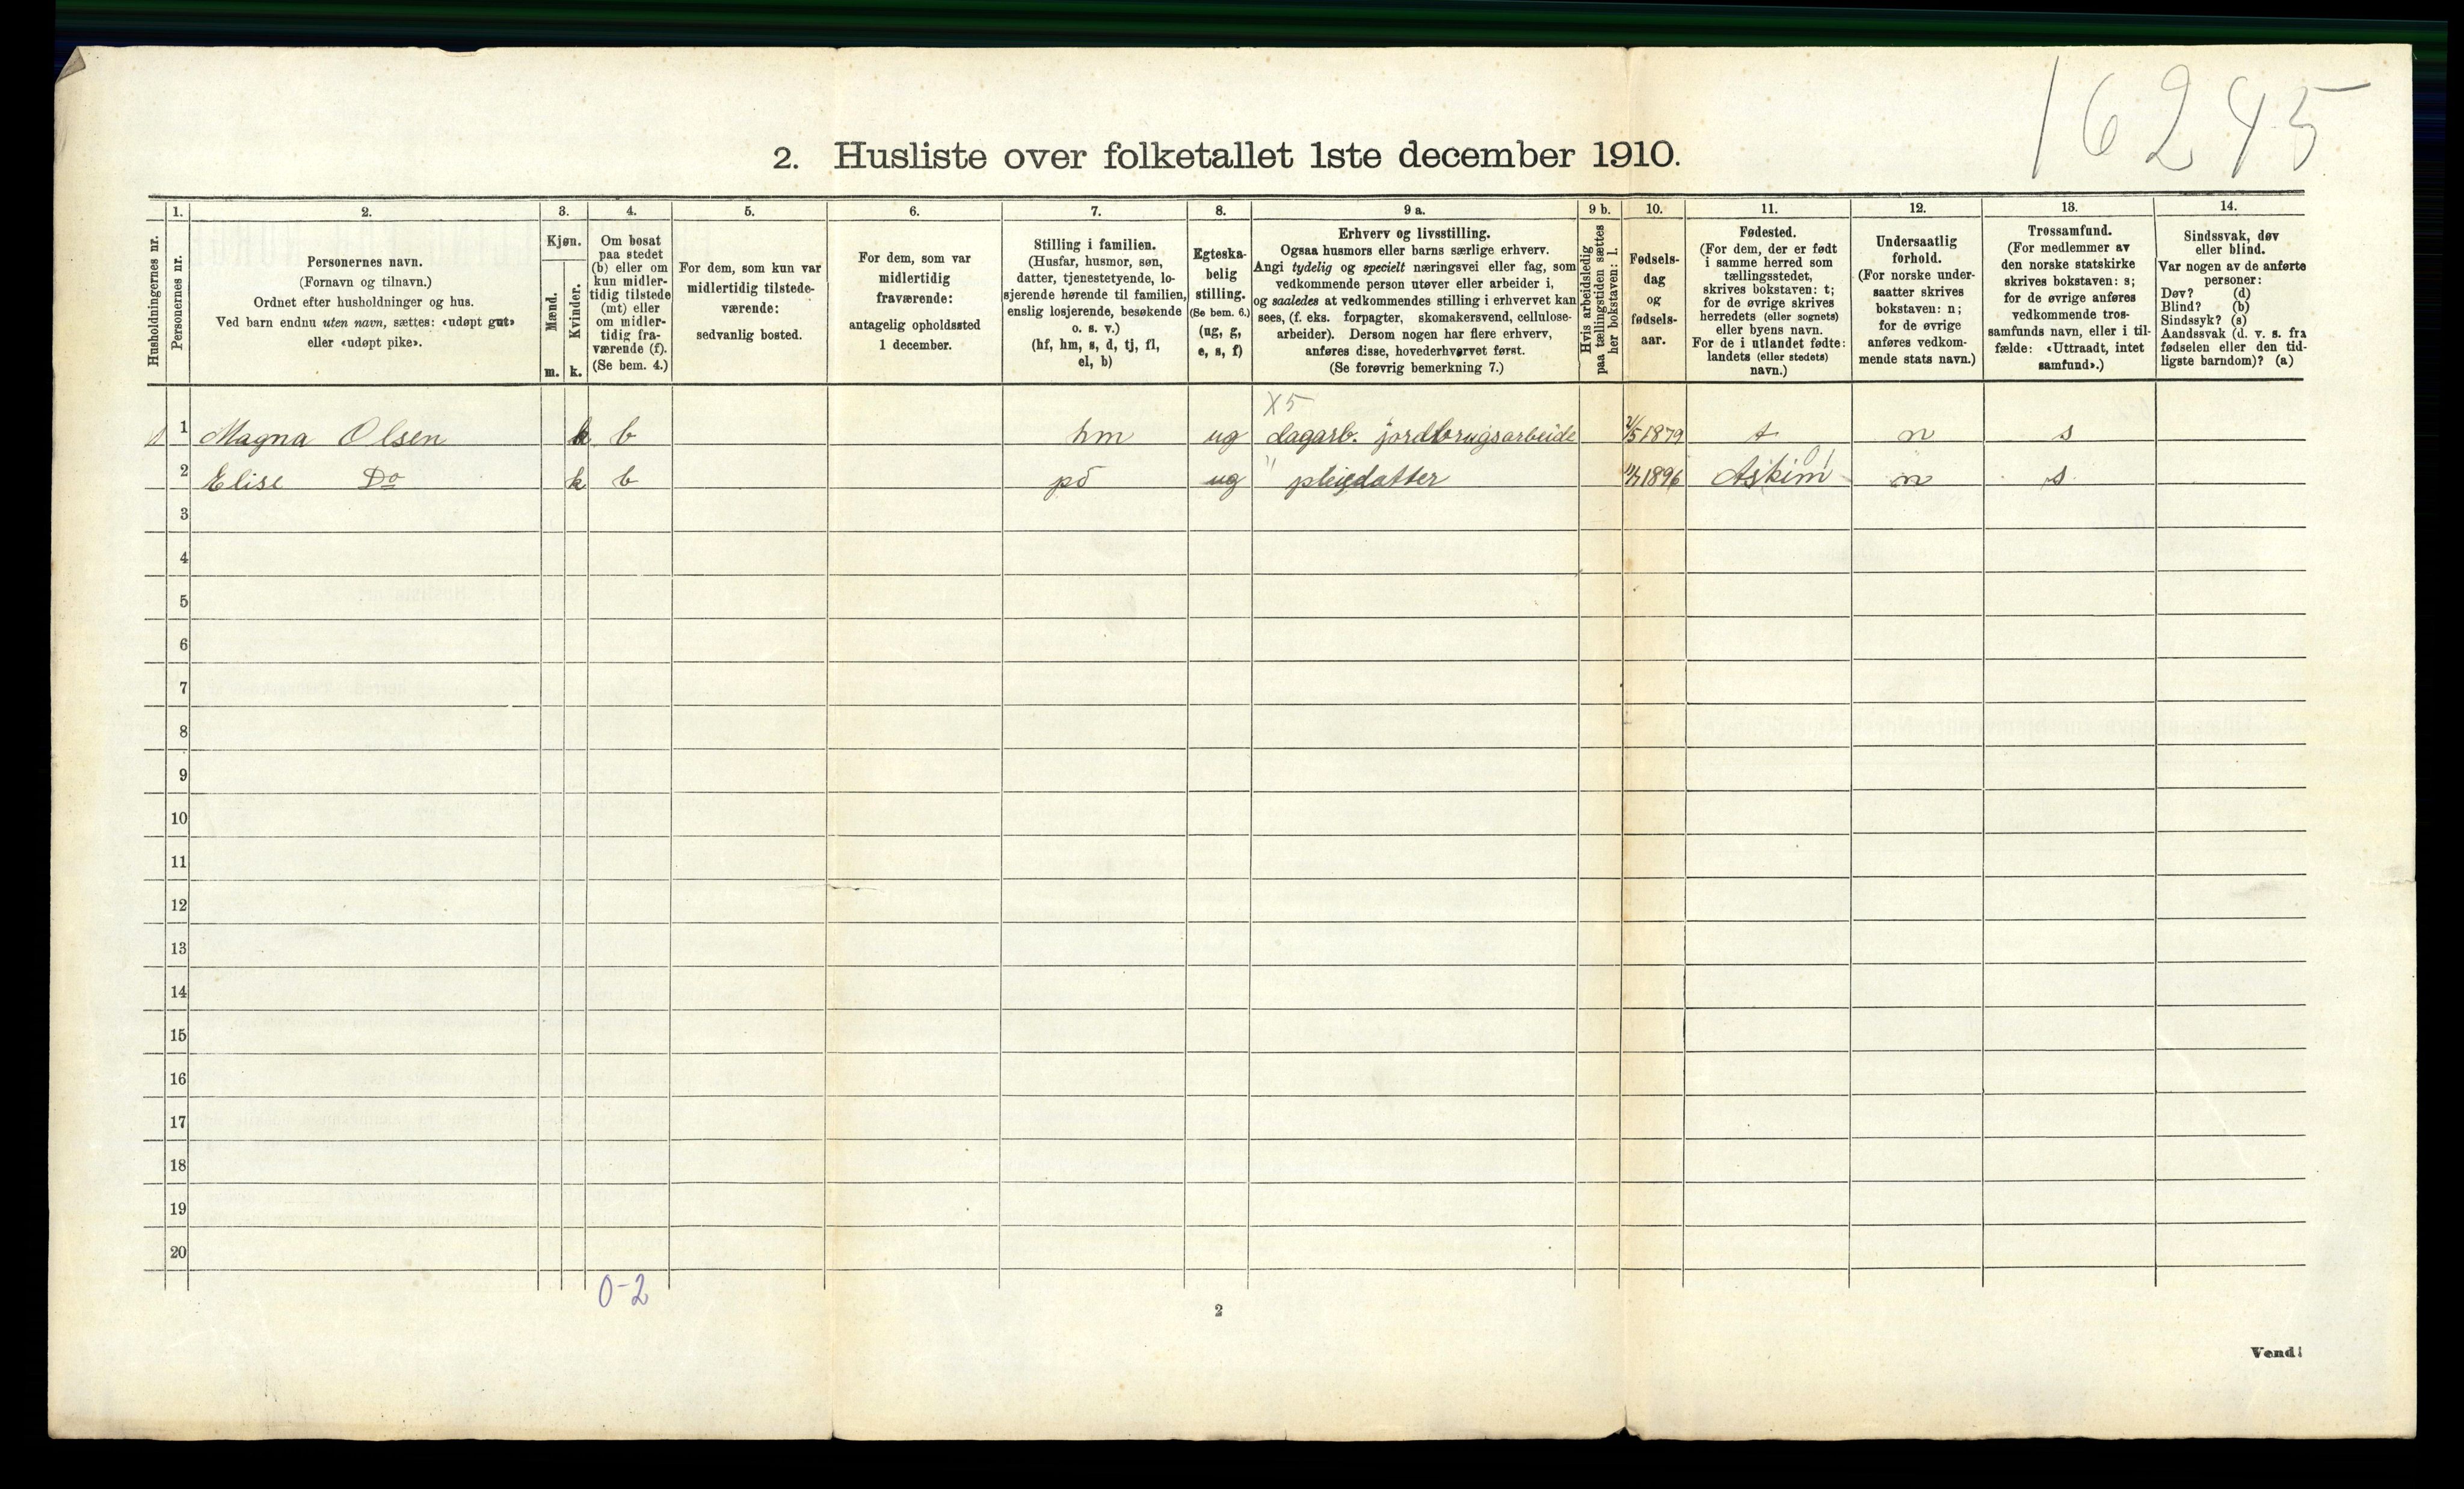 16245
2. Husliste over folketallet 1ste december 1910.
1. 2. 3. 4. 5. 6. 7. 8. 9 a. 9 b. 10. 11. 12. 13. 14.
Husholdningernes nr.
Personernes nr.
Personernes navn.
(Fornavn og tilnavn.)
Ordnet efter husholdninger og hus.
Ved barn endnu uten navn, sættes: «udøpt gut»
eller «udøpt pike».
Kjøn.
Mænd.
Kvinder.
m. k.
Om bosat
paa stedet
(b) eller om
kun midler-
tidig tilstede
(mt) eller
om midler-
tidig fra-
værende (f).
(Se bem. 4.)
For dem, som kun var
midlertidig tilstede-
værende:
sedvanlig bosted.
For dem, som var
midlertidig
fraværende:
antagelig opholdssted
1 december.
Stilling i familien.
(Husfar, husmor, søn,
datter, tjenestetyende, lo-
sjerende hørende til familien,
enslig losjerende, besøkende
o. s. v.)
(hf, hm, s, d, tj, fl,
el, b)
Egteska-
belig
stilling.
(Se bem. 6.)
(ug, g,
e, s, f)
Erhverv og livsstilling.
Ogsaa husmors eller barns særlige erhverv.
Angi tydelig og specielt næringsvei eller fag, som
vedkommende person utøver eller arbeider i,
og saaledes at vedkommendes stilling i erhvervet kan
sees, (f. eks. forpagter, skomakersvend, cellulose-
arbeider). Dersom nogen har flere erhverv,
anføres disse, hovederhvervet først.
(Se forøvrig bemerkning 7.)
Hvis arbeidsledig
paa tællingstiden sættes
her bokstaven: l.
Fødsels-
dag
og
fødsels-
aar.
Fødested.
(For dem, der er født
i samme herred som
tællingsstedet,
skrives bokstaven: t;
for de øvrige skrives
herredets (eller sognets)
eller byens navn.
For de i utlandet fødte:
landets (eller stedets)
navn.)
Undersaatlig
forhold.
(For norske under-
saatter skrives
bokstaven: n;
for de øvrige
anføres vedkom-
mende stats navn.)
Trossamfund.
(For medlemmer av
den norske statskirke
skrives bokstaven: s;
for de øvrige anføres
vedkommende tros-
samfunds navn, eller i til-
fælde: «Uttraadt, intet
samfund».)
Sindssvak, døv
eller blind.
Var nogen av de anførte
personer:
Døv? (d)
Blind? (b)
Sindssyk? (s)
Aandssvak (d. v. s. fra
fødselen eller den tid-
ligste barndom)? (a)
X5
1 1 Magna Olsen k b hm ug dagarb. jordbrugsarbeide 1879 t n s
2 Elise Do k b pd ug " pleiedatter 1896 Askim n s
3
4
5
6
7
8
9
10
11
12
13
14
15
16
17
18
19
20
0-2
2
Vend!